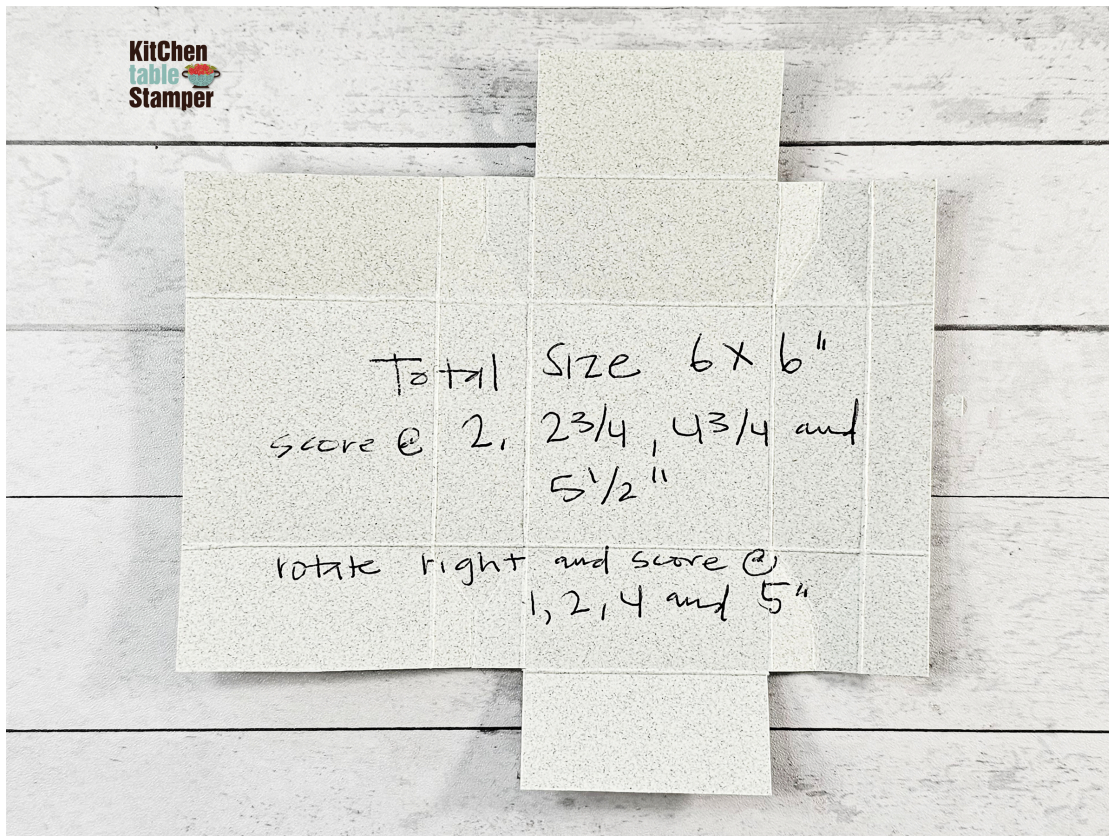 KitChen
table
Stamper
Total Size 6 x 6"
score @ 2, 2 3/4, 4 3/4 and
5 1/2"
rotate right and score @
1, 2, 4 and 5"